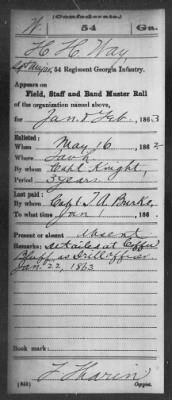 (Confederate.)
W. 54 Ga.
H. H. Way
Sgt Major, 54 Regiment Georgia Infantry.
Appears on
Field, Staff and Band Muster Roll
of the organization named above,
for Jan. & Feb., 1863
Enlisted:
When May 16, 1862
Where Savh
By whom Capt Knight,
Period 3 years
Last paid:
By whom Capt T. A. Burke,
To what time Jan 1, 186
Present or absent Absent
Remarks: Detailed at Coffee
Bluff as Drill officer
Jan. 22, 1863
Book mark:
Copyist.